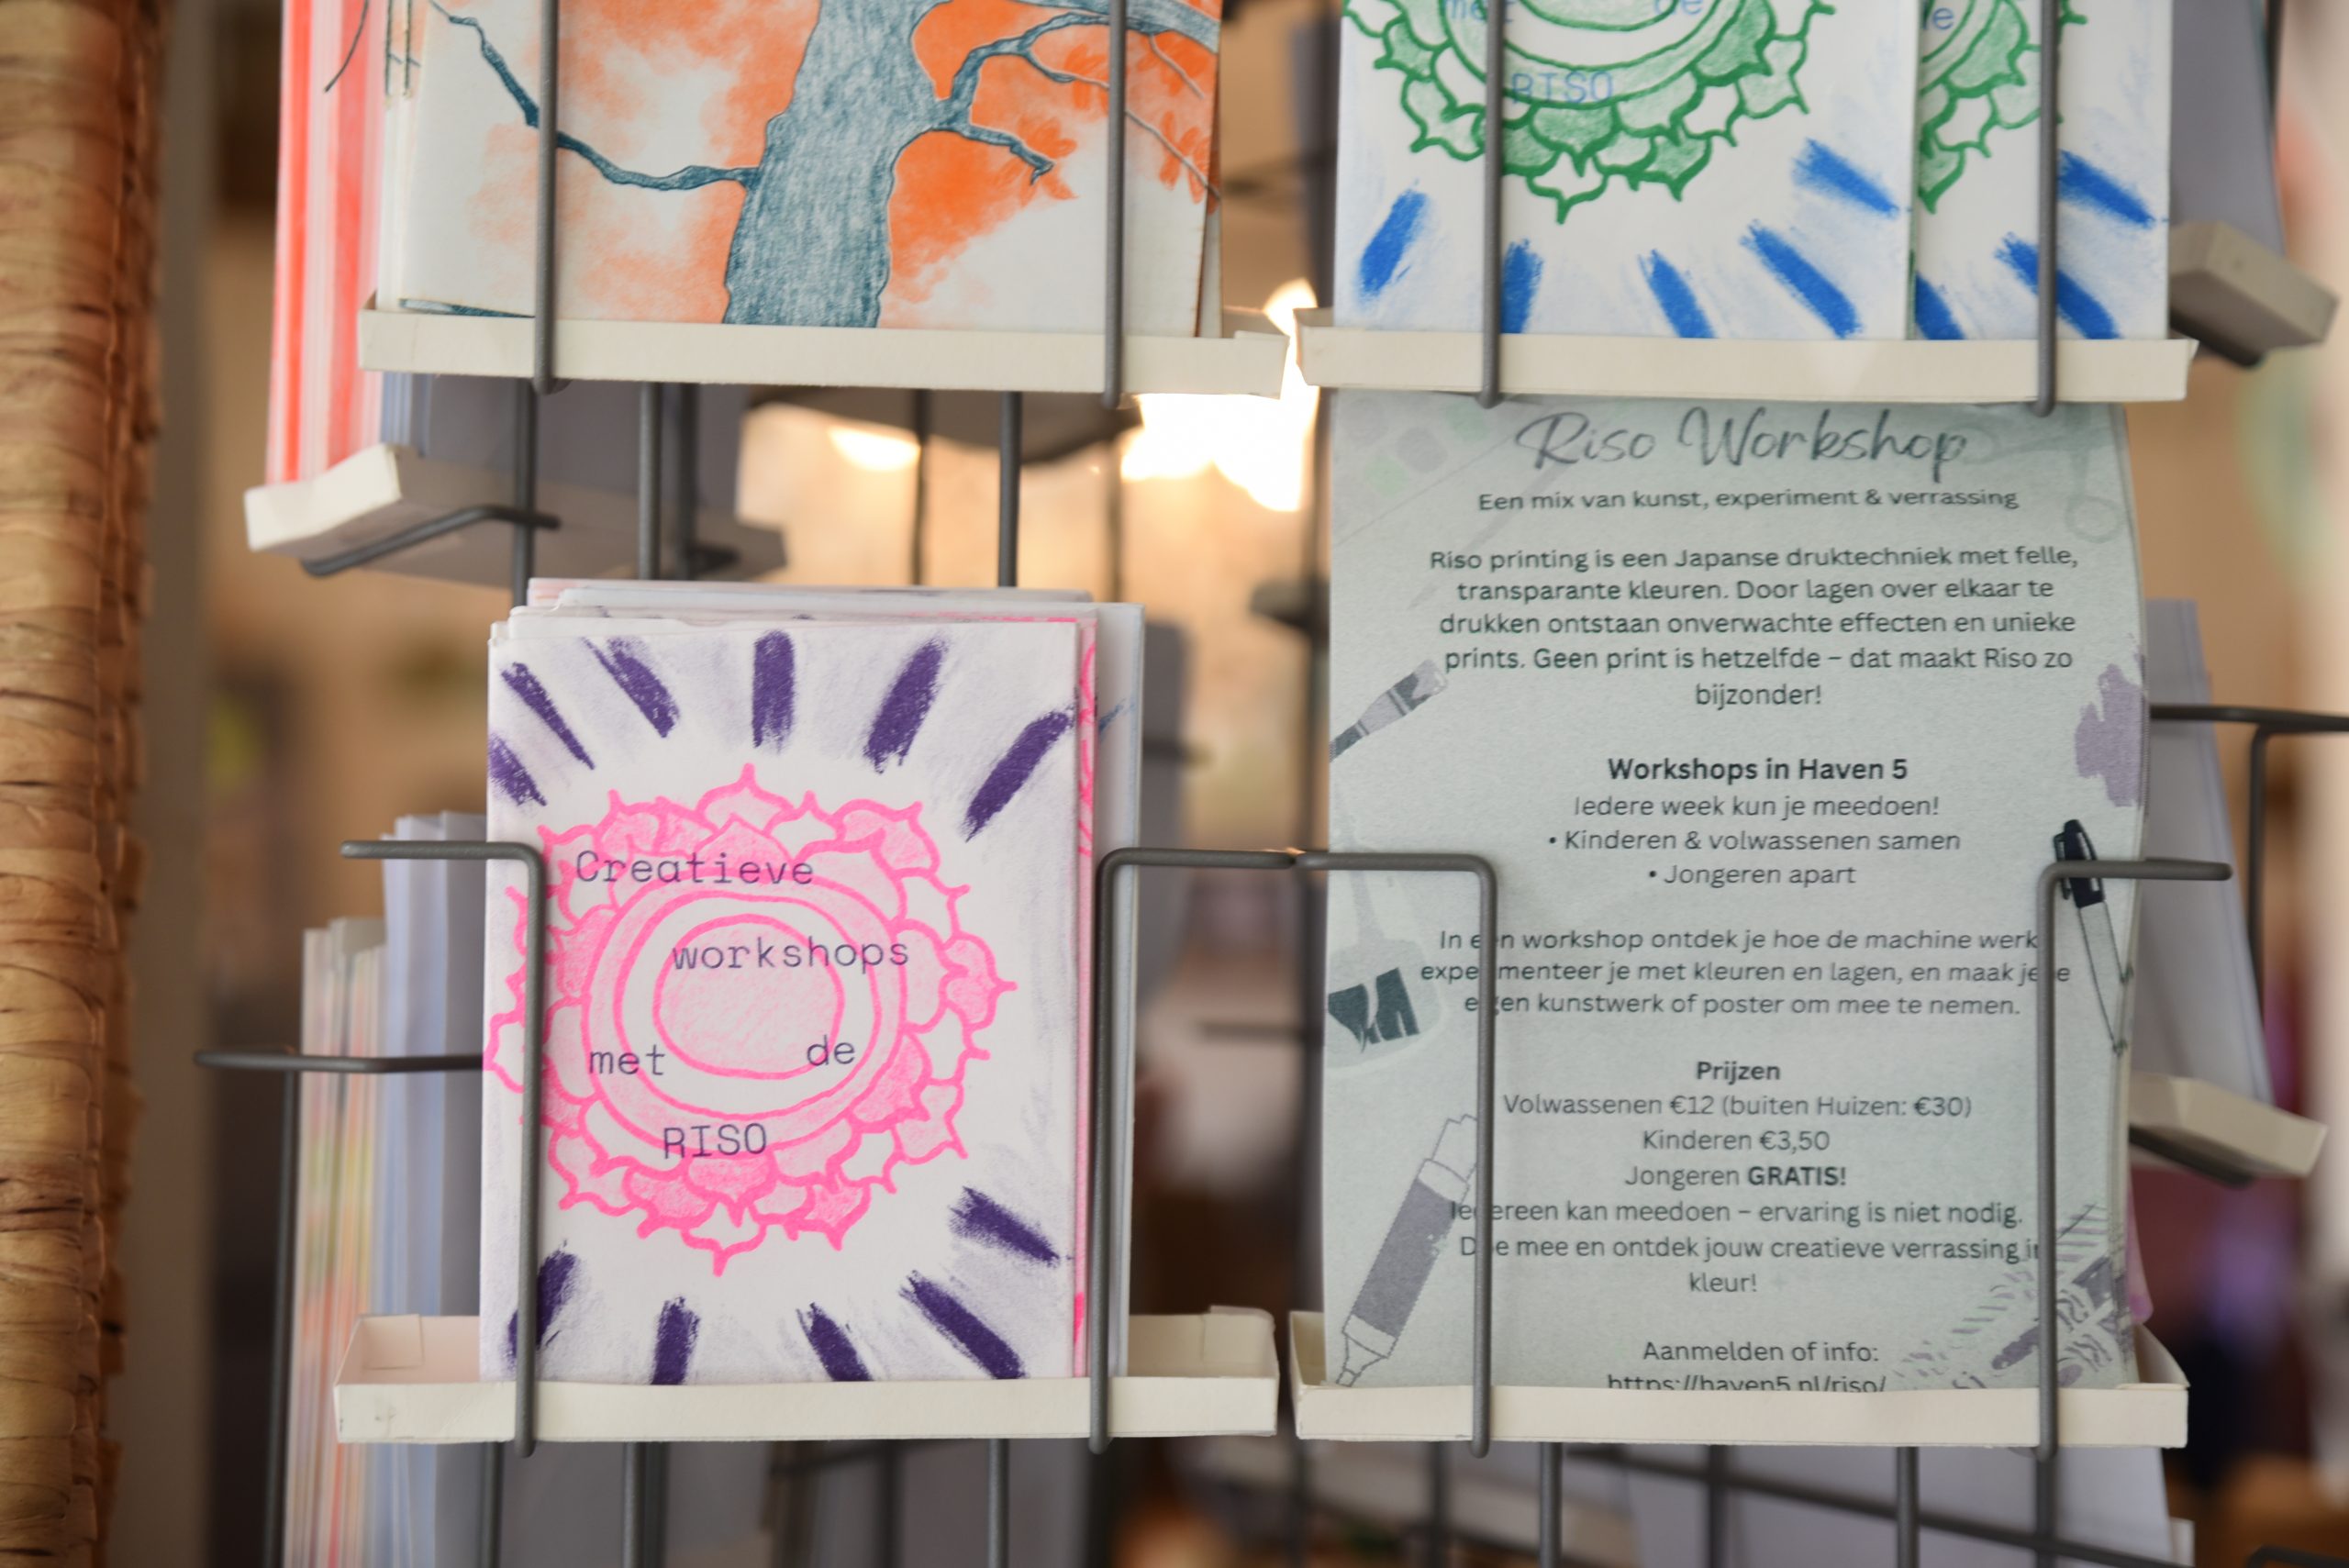 met de
RISO
de
Riso Workshop
Een mix van kunst, experiment & verrassing
Riso printing is een Japanse druktechniek met felle,
transparante kleuren. Door lagen over elkaar te
drukken ontstaan onverwachte effecten en unieke
prints. Geen print is hetzelfde – dat maakt Riso zo
bijzonder!
Workshops in Haven 5
Iedere week kun je meedoen!
• Kinderen & volwassenen samen
• Jongeren apart
In een workshop ontdek je hoe de machine werk
experimenteer je met kleuren en lagen, en maak je je
eigen kunstwerk of poster om mee te nemen.
Prijzen
Volwassenen €12 (buiten Huizen: €30)
Kinderen €3,50
Jongeren GRATIS!
Iedereen kan meedoen – ervaring is niet nodig.
Doe mee en ontdek jouw creatieve verrassing in
kleur!
Aanmelden of info:
https://haven5.nl/riso/
Creatieve
workshops
met de
RISO